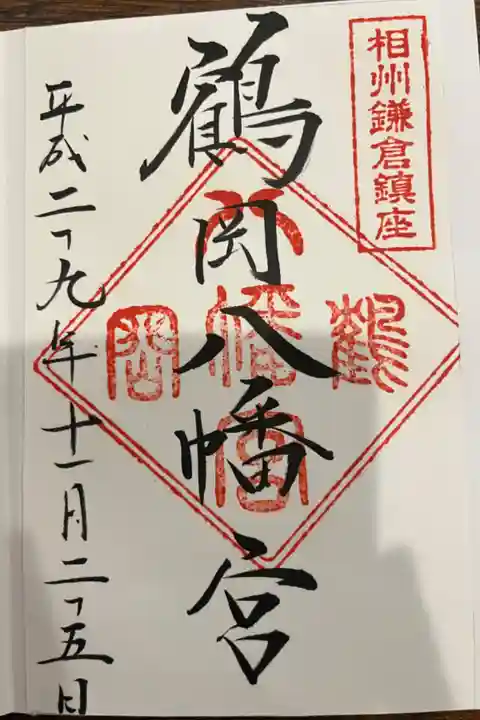 相州鎌倉鎮座
鶴岡八幡宮
鶴
八幡宮
岡
平成二十九年十一月二十五日